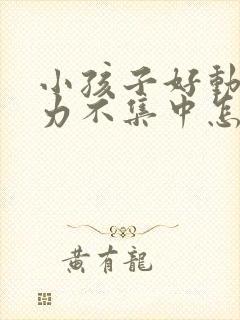 小孩子好動
力不集中怎
黄有龍